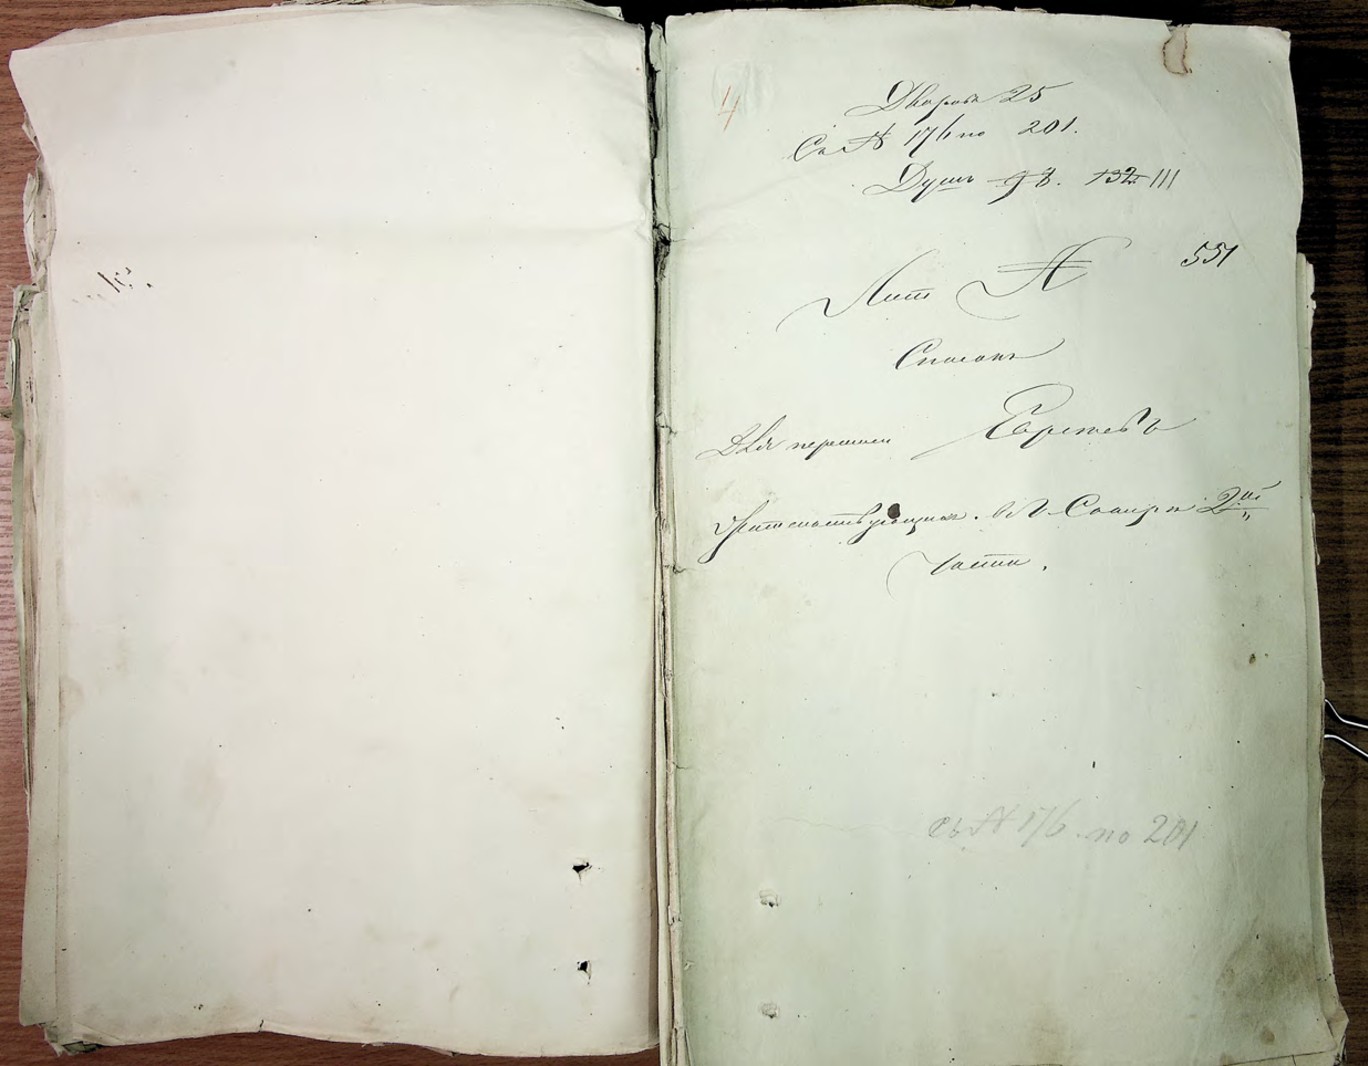 4
Дворовъ 25
Съ № 176 по 201.
Душъ 98. 132 111
551
Лит А
Списокъ
Для переписи Евреевъ
жительствующихъ въ г. 2ой
части.
съ № 176 по 201